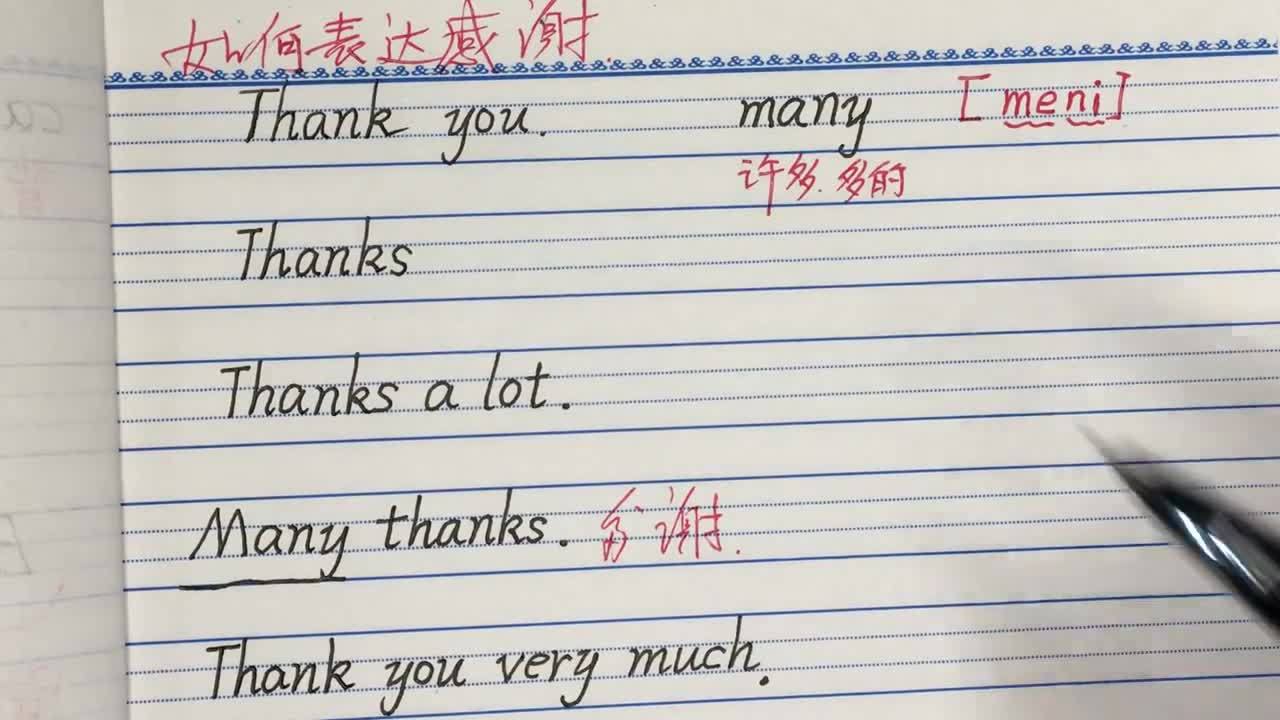 如何表达感谢.
Thank you. many [meni]
许多.多的
Thanks
Thanks a lot.
Many thanks. 多谢.
Thank you very much.